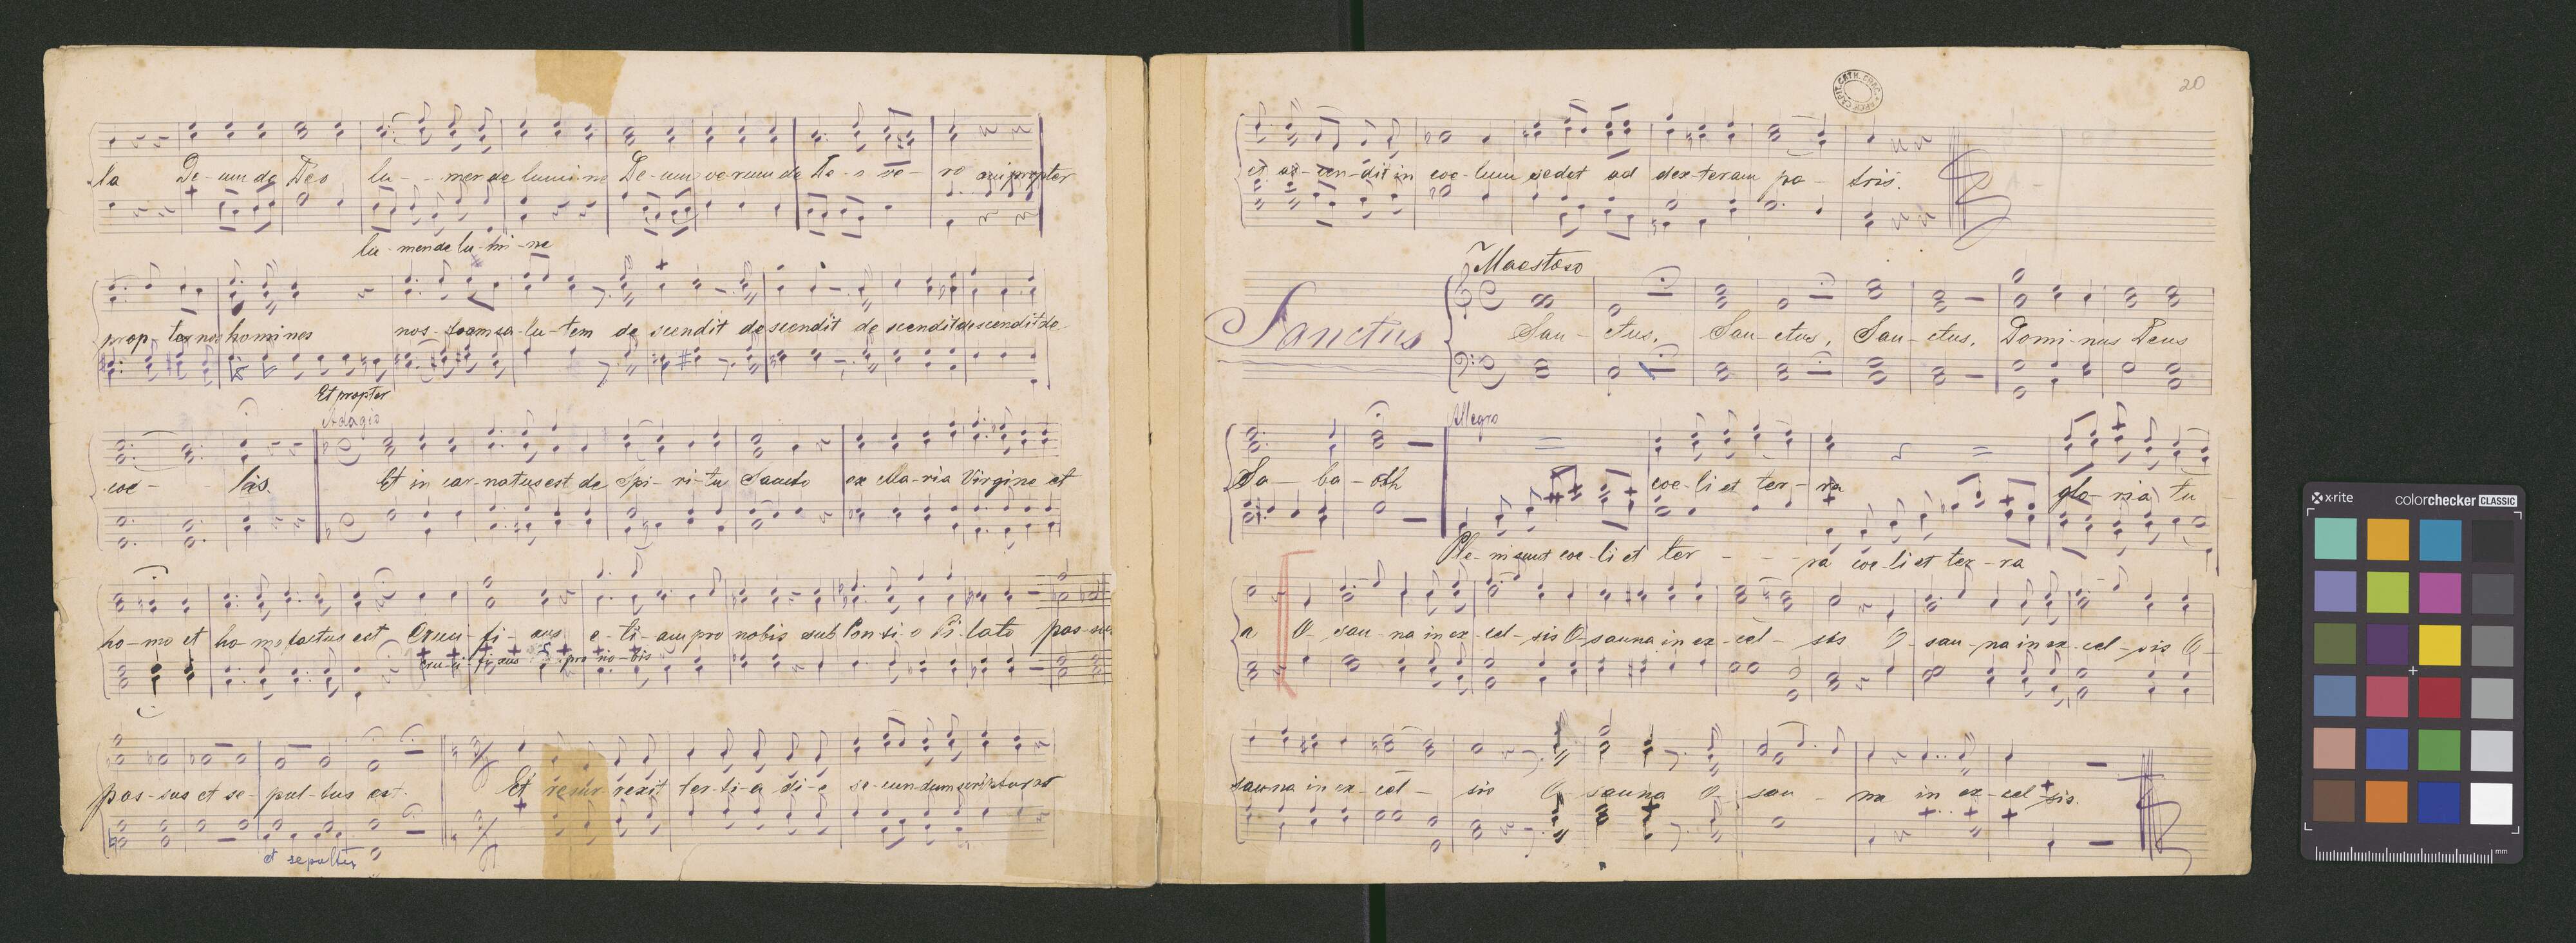 la De-um de Deo lu-- men de lumine De-um verum de De-o ve-ro qui propter
lu-men de lu-mi-ne
prop ter nos homines nos-tram sa-lu-tem de scendit de scendit de scendit descendit de
Et propter
Adagio
coe- lis. Et in car-natus est de Spi-ri-tu Sancto ex Ma-ria Virgine et
ho-mo et ho-mo factus est Cruci-fi-xus e-ti-am pro nobis sub Pon-ti-o Pi-lato pas-sus
cru-ci fi xus pro no-bis
pas-sus et se-pul-tus est. Et resur rexit ter-ti-a di-e se-cun-dum scripturas
et sepultus
20
et as-cen-dit in coe-lum sedet ad dex-teram pa-tris.
Maestoso
Sanctus San-ctus, San-ctus, San-ctus, Domi-nus Deus
Allegro
Sa-ba-oth coe-li et ter-ra glo-ria tu
Ple-ni sunt coe-li et ter---ra coe-li et ter-ra
a O-san-na in ex-cel-sis O-sanna in ex-cel-sis O-san-na in ex-cel-sis O-
sanna in ex-cel-sis O-sanna O-san-na in ex-cel sis.
x-rite colorchecker CLASSIC
mm